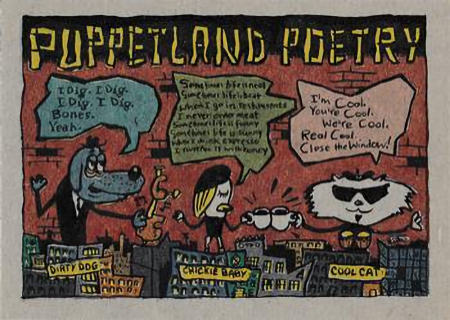 PUPPETLAND POETRY
I Dig. I Dig.
I Dig. I Dig.
Bones.
Yeah.
Sometimes life is neat
Sometimes life's a beat
when I go in restaurants
I never order meat
Sometimes life is funny
Sometimes life is sunny
when I drink espresso
I it with honey
I'm Cool.
You're Cool.
We're Cool.
Real Cool.
Close the Window!
DIRTY DOG
CHICKIE BABY
COOL CAT